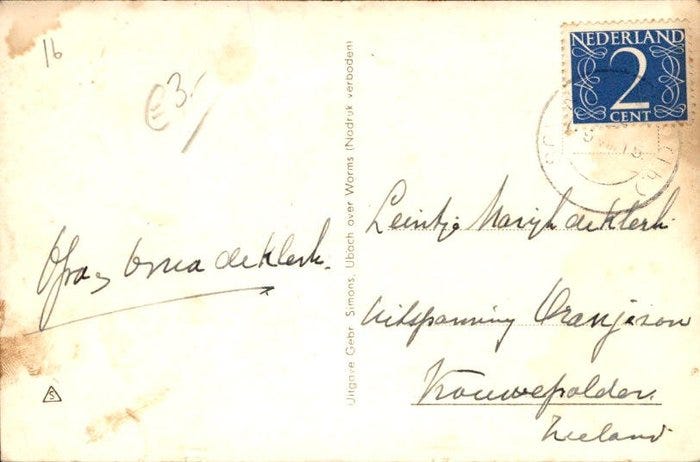 16
€3,-
NEDERLAND
2
CENT
Opa en Oma de Klerk.
Uitgave Gebr. Simons, Ubach over Worms (Nadruk verboden)
Leintje Marijk de Klerk
Uitspanning Oranjezon
Vrouwepolder.
Zeeland
S